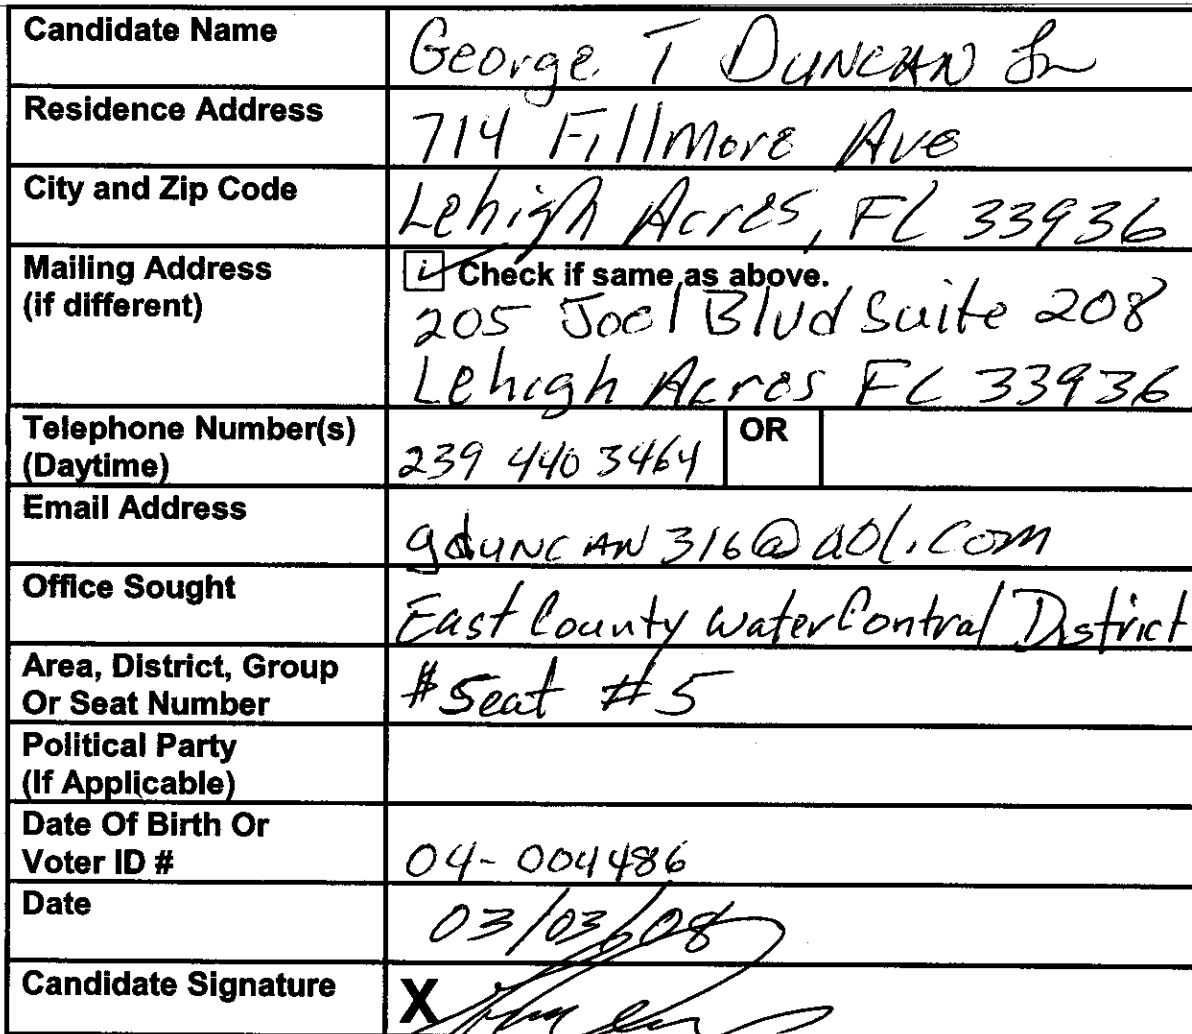 Candidate Name George T Duncan Jr
Residence Address 714 Fillmore Ave
City and Zip Code Lehigh Acres, FL 33936
Mailing Address Check if same as above.
(if different) 205 Joel Blvd Suite 208
Lehigh Acres FL 33936
Telephone Number(s) OR
(Daytime) 239 440 3464
Email Address
gduncan316@aol.com
Office Sought
East County Water Control District
Area, District, Group
Or Seat Number #Seat #5
Political Party
(If Applicable)
Date Of Birth Or
Voter ID # 04-004486
Date 03/03/08
Candidate Signature X